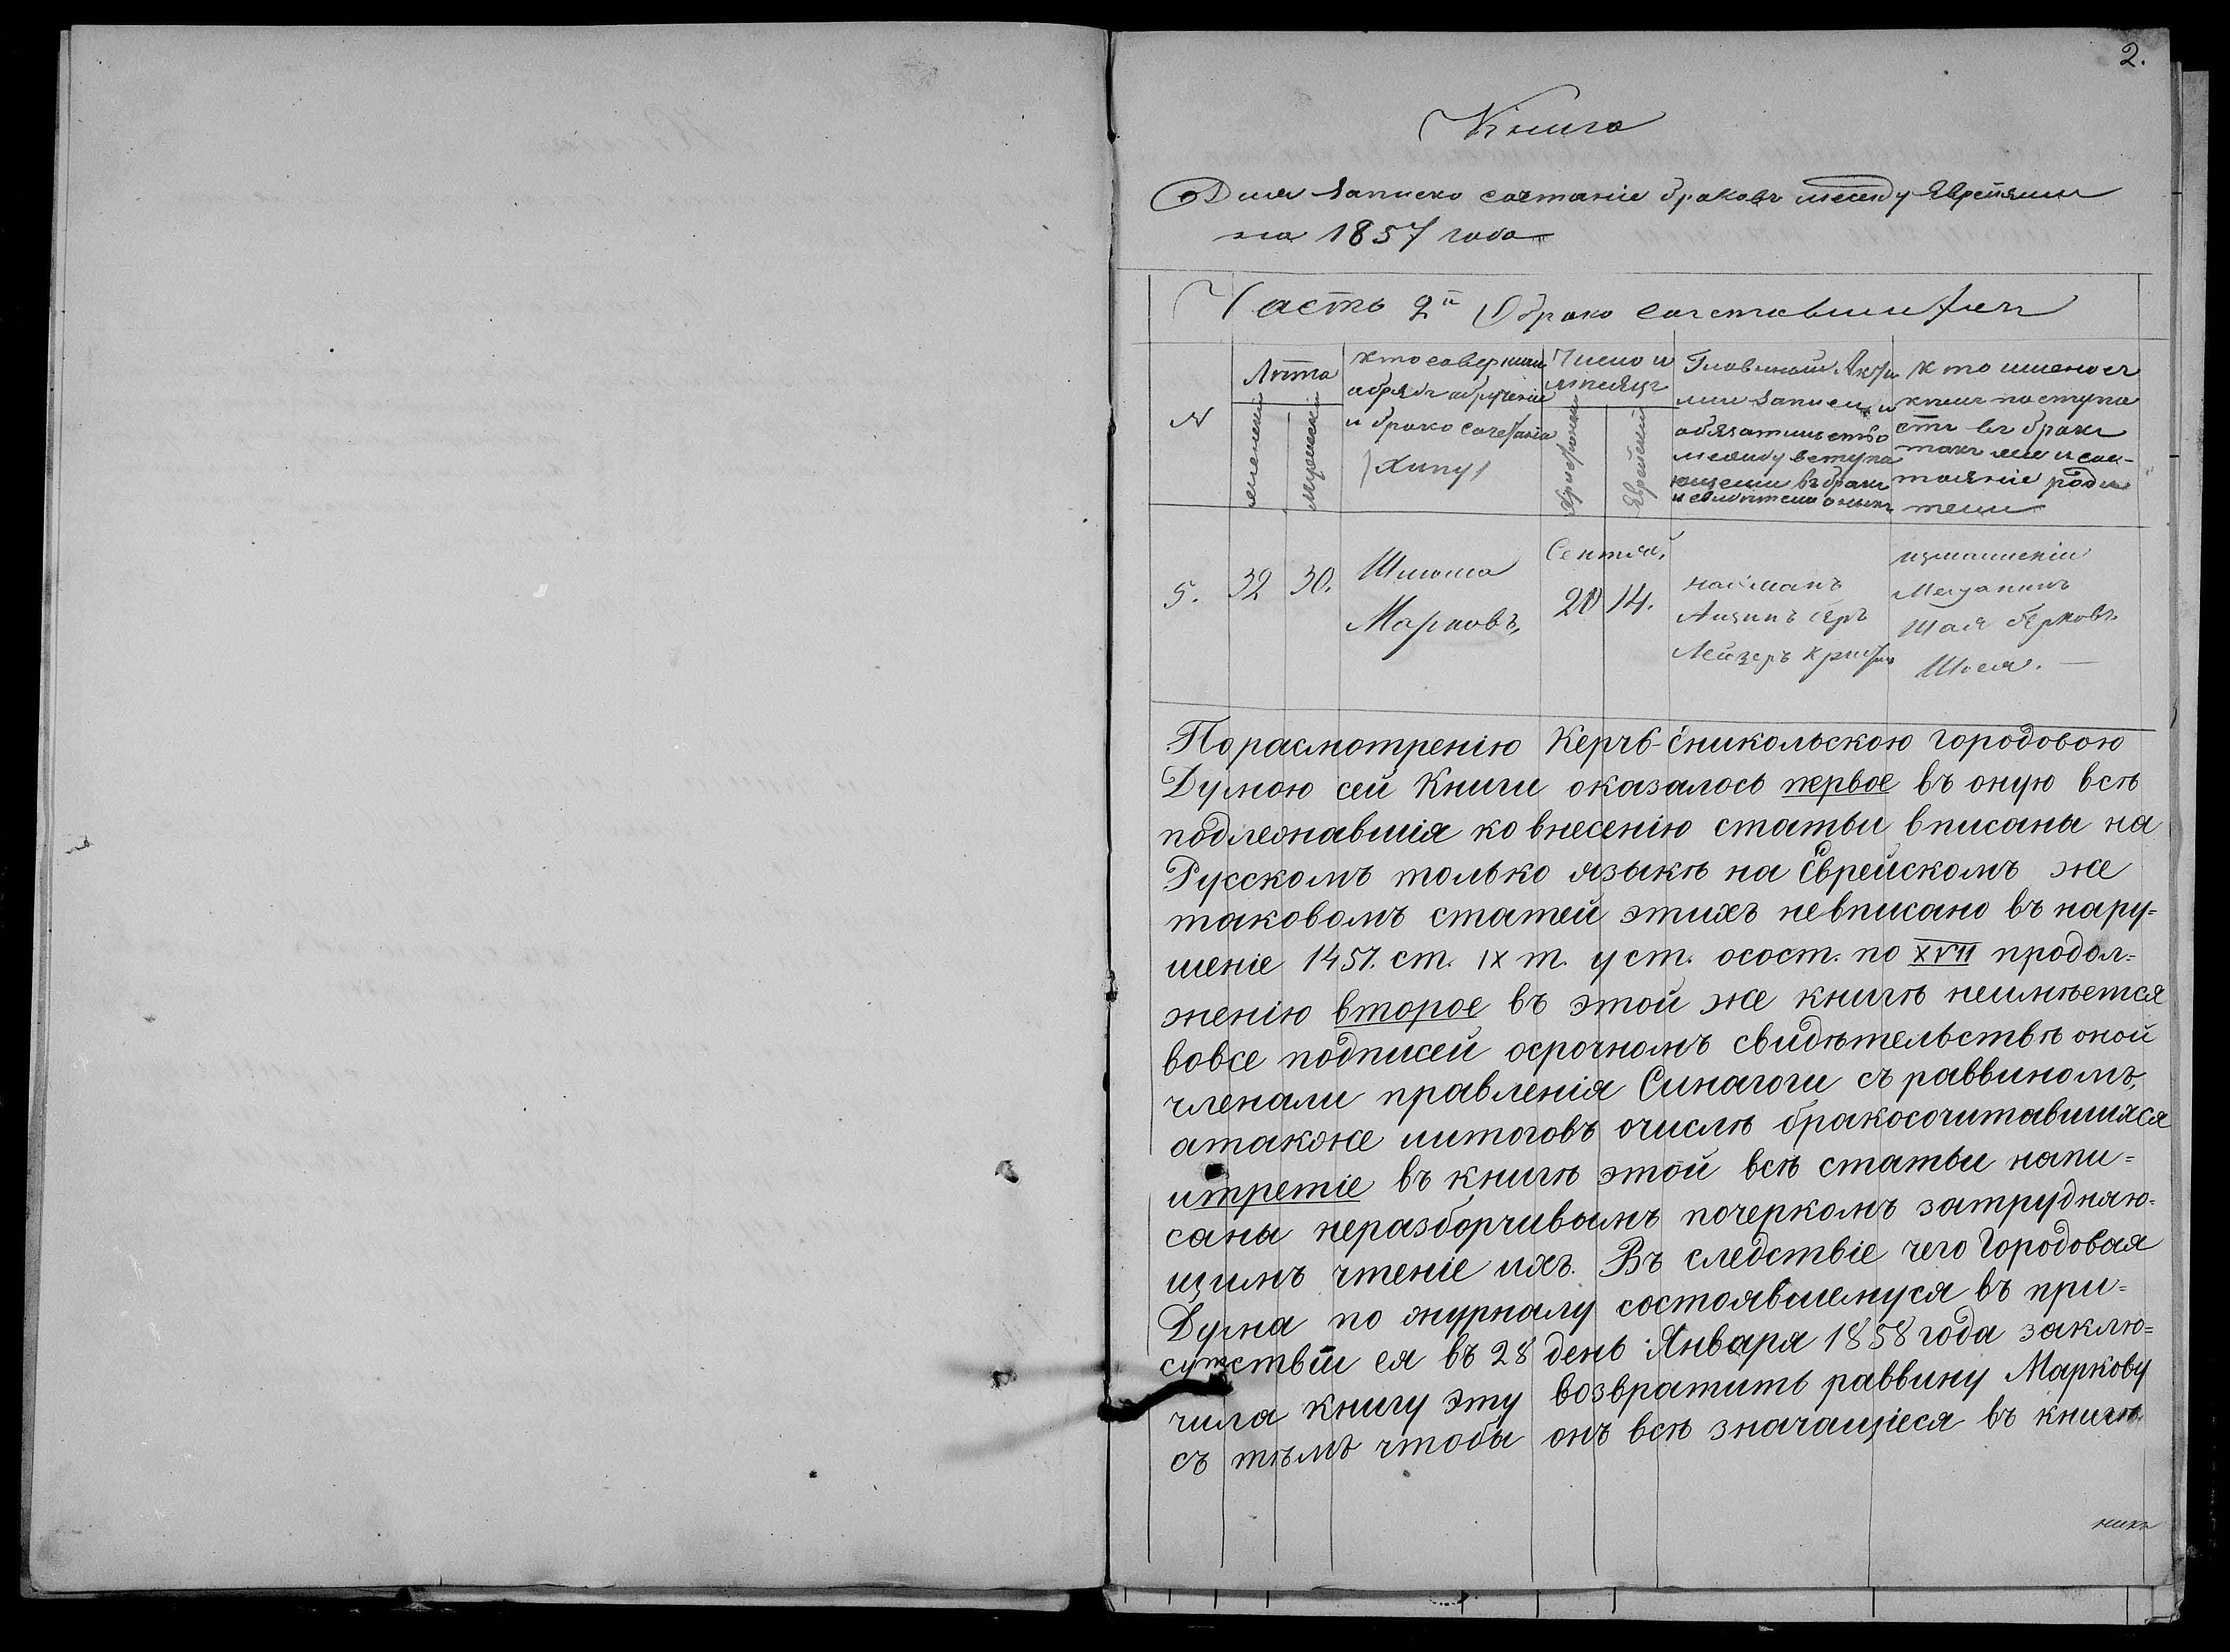 2.
Книга
Для записко сочтаніе браковъ между Евреями
на 1857 года
Часть 2й О брако сочетавшихся
N
Лѣта
женскій
мужескій
кто совершил
обрядъ обрученіе
и брако сочетанія
(хипу)
Число и
мѣсяцъ
Христіанскій
Еврейскій
Главныый Акты
или записи и
обязательство
между вступа
ющеми въ браки
и свидѣтели оныхъ
кто именно съ
кѣмъ поступа
етъ въ браки
такъ же и сос-
тояніе роди
тели
5.
32
30.
Шлиома
Марковъ,
Сентяб.
20
14.
найманъ
Лейзеръ
Мещанинъ
Шая Берковъ
Порасмотренію Керчь-Єникольскою городовою
Думою сей Книги оказалось первое въ оную всѣ
подлежавшія ко внесенію статьи вписаны на
Русскомъ только языкѣ на Еврейскомъ же
таковомъ статей этихъ невписано въ нару=
шеніе 1451. ст. IX т. уст. осост. по XVII продол=
женію второе въ этой же книгѣ неимѣется
вовсе подписей осрочномъ свидѣтельствѣ оной
членами правленія Синагоги съ раввиномъ,
атакже иитоговъ очислѣ бракосочитавшихся
итретіе въ книгѣ этой всѣ статьи напи=
саны неразборчивымъ почеркомъ затрудняю=
щимъ чтеніе ихъ. Въ следствіе чего Городовая
Дума по журналу состоявшемуся въ при=
сутствіи ея въ 28 день Января 1858 года заклю=
чила книгу эту возвратить раввину Маркову
съ тѣмъ чтобы онъ всѣ значащіеся въ книгѣ